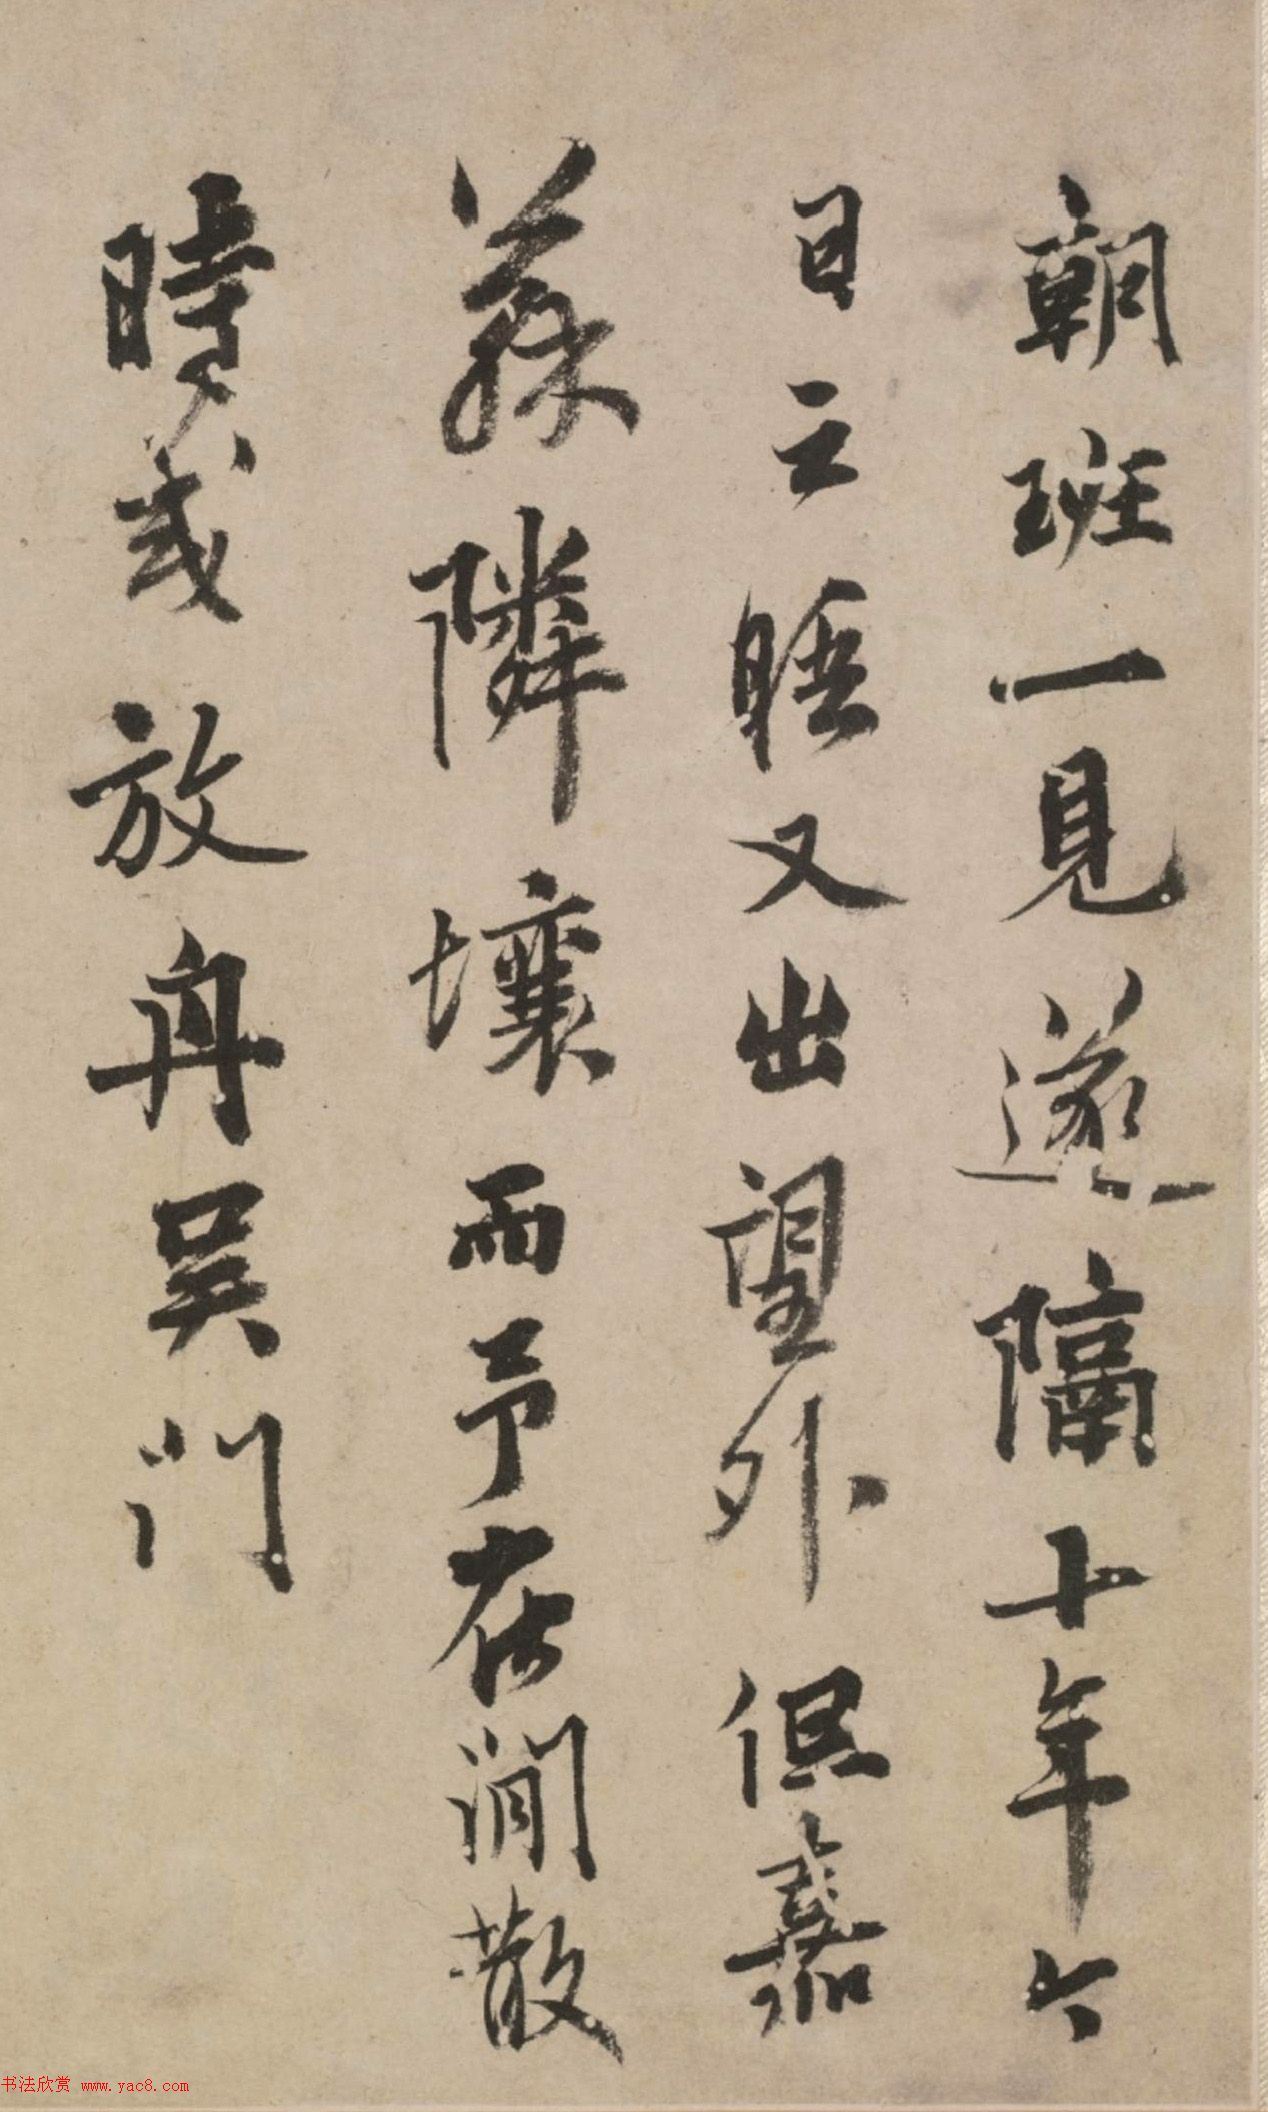 朝班一見遂隔十年六
日云晤又出望外但嘉
蘇隣壤而予在閒散
時或放舟吴門
书法欣赏 www.yac8.com